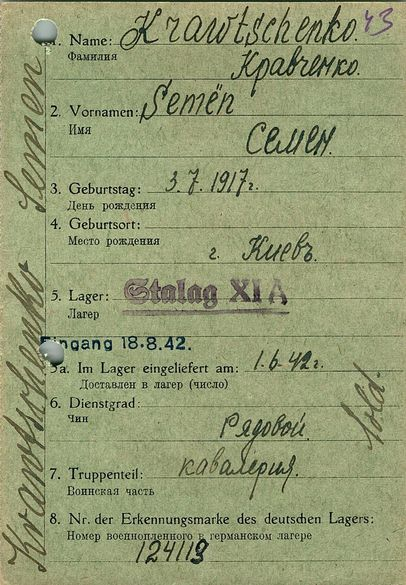 43
1. Name: Krawtschenko.
Фамилия
Кравченко.
2. Vornamen: Semën
Имя
Семен.
3. Geburtstag: 3.7.1917г.
День рождения
4. Geburtsort:
Место рождения
г. Киевъ.
5. Lager: Stalag XI A
Лагер
Eingang 18.8.42.
5a. Im Lager eingeliefert am: 1.6.42г.
Доставлен в лагер (число)
6. Dienstgrad:
Чин
Рядовой.
Sold.
7. Truppenteil: кавалерия.
Воинская часть
8. Nr. der Erkennungsmarke des deutschen Lagers:
Номер военнопленного в германском лагере
124119
Krawtschenko Semen